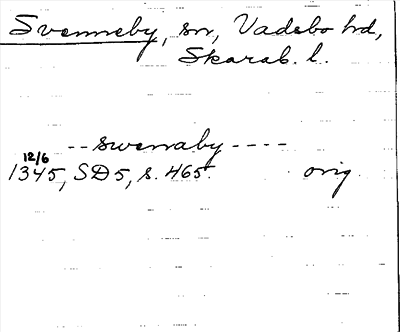 Svenneby, sn, Vadsbo hd,
Skarab. l.
-- swenaby ----
12/6
1345, SD 5, s. 465. orig